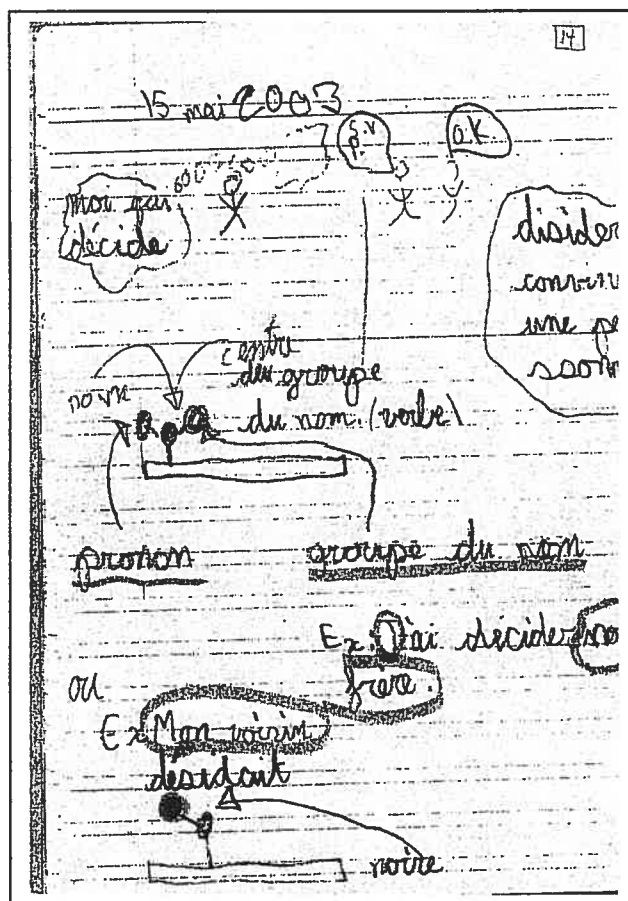 14
15 mai 2003
s.v.
p.
o.K.
moi qui
décide
disider
une pe
centre
du groupe
du nom (verbe)
pronon
groupe du nom
Ex. J'ai décider mo
frère.
ou
Ex. Mon voisin
désidait
noire